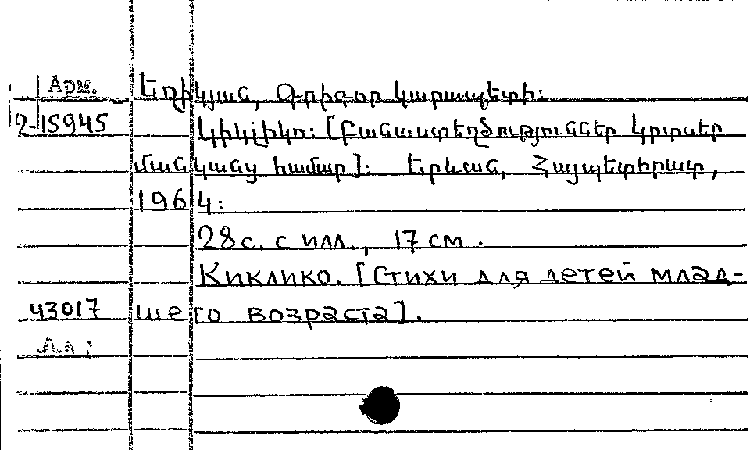 Арм. Եղիկյան, Գրիգոր Կարապետի:
2-15945 Կիկլիկո: [Բանաստեղծություններ կրտսեր
մանկանց համար]: Երևան, Հայպետհրատ,
1964:
28 с. с илл., 17 см.
Киклико. [Стихи для детей млад-
43017 шего возраста].